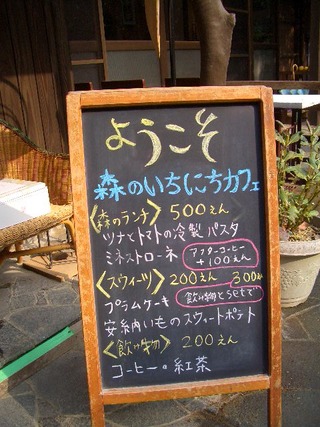 ようこそ
森のいちにちカフェ
<森のランチ> 500えん
ツナとトマトの冷製パスタ
ミネストローネ
アフターコーヒー
+100えん
<スウィーツ> 200えん 300えん
プラムケーキ
飲け物とsetで
安納いものスウィートポテト
<飲け物> 200えん
コーヒー。紅茶